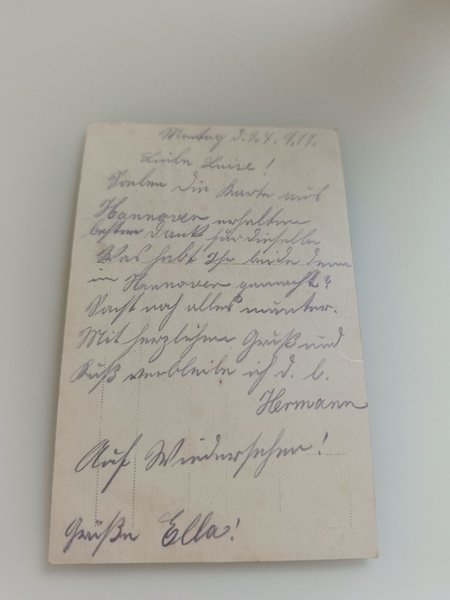 Montag d. 24. 9. 17.
Liebe Luise!
Soeben die Karte aus
Hannover erhalten
besten Dank für dieselbe
Was habt Ihr beide denn
in Hannover gemacht?
noch alles munter.
Mit herzlichem Gruß und
Kuß verbleibe ich d. l.
Hermann
Auf Wiedersehen!
Grüße Ella!